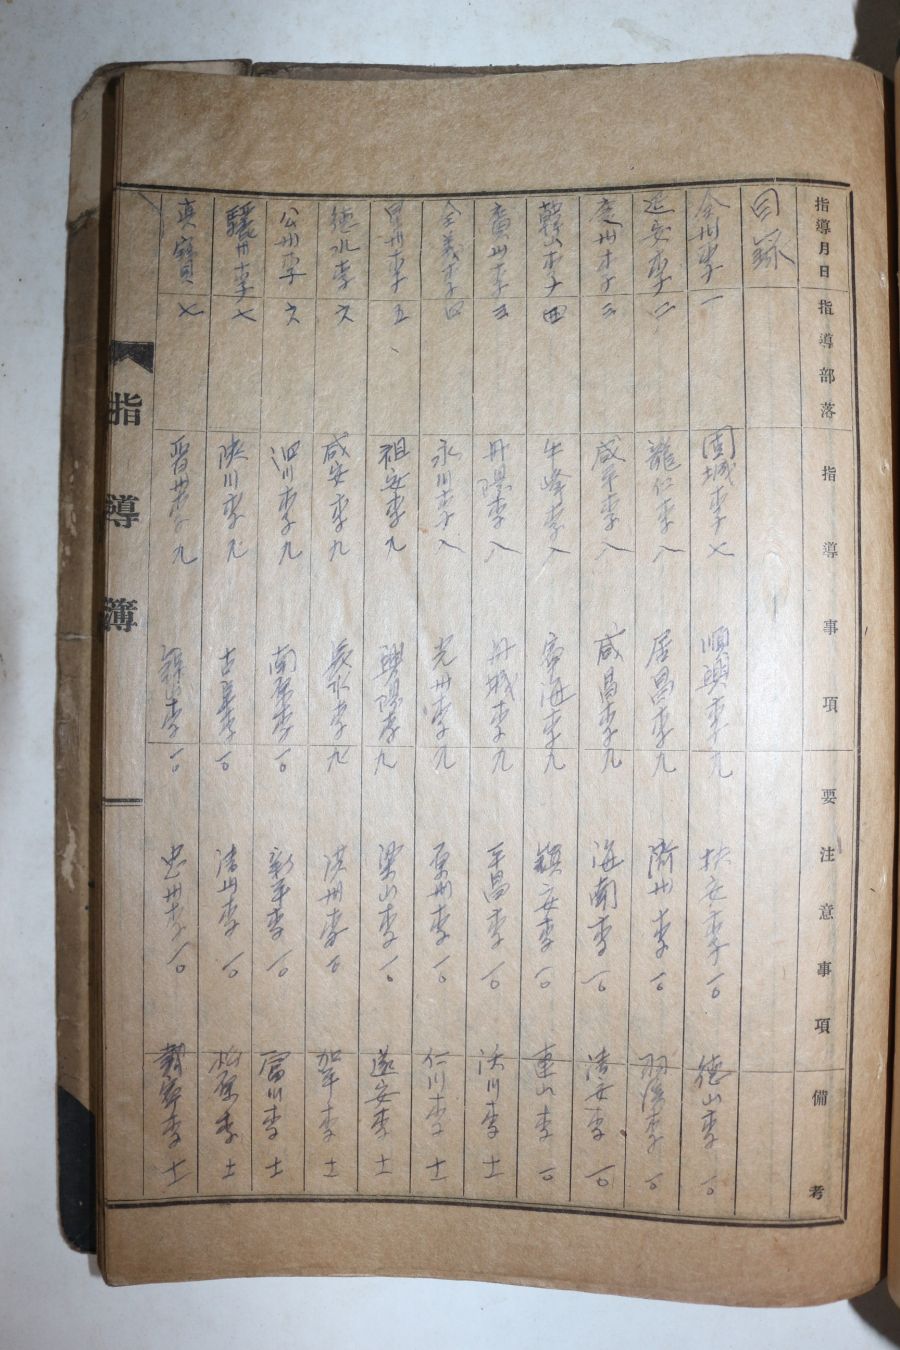 指導月日 指導部落 指導事項 要注意事項 備考
目錄
全州李 一 固城李 七 順興李 九 扶安李 一〇 德山李 一〇
延安李 二 龍仁李 八 居昌李 九 濟州李 一〇 羽溪李 一〇
慶州李 三 咸平李 八 咸昌李 九 海南李 一〇 清安李 一〇
韓山李 四 牛峰李 八 寧海李 九 鎮安李 一〇 連山李 一〇
丹陽李 八 丹城李 九 平昌李 一〇 沃川李 十一
全義李 四 永川李 八 光州李 九 原州李 一〇 仁川李 十一
五 祖安李 九 興陽李 九 梁山李 一〇 遂安李 十一
德水李 六 咸安李 九 長水李 九 洪州李 一〇 加平李 十一
公州李 六 泗川李 九 南李 一〇 新平李 一〇 富川李 十一
驪州李 七 陜川李 九 古阜李 一〇 清州李 一〇 原李 十一
真寶 七 晋州李 九 一〇 忠州李 一〇 載寧李 十一
指導簿